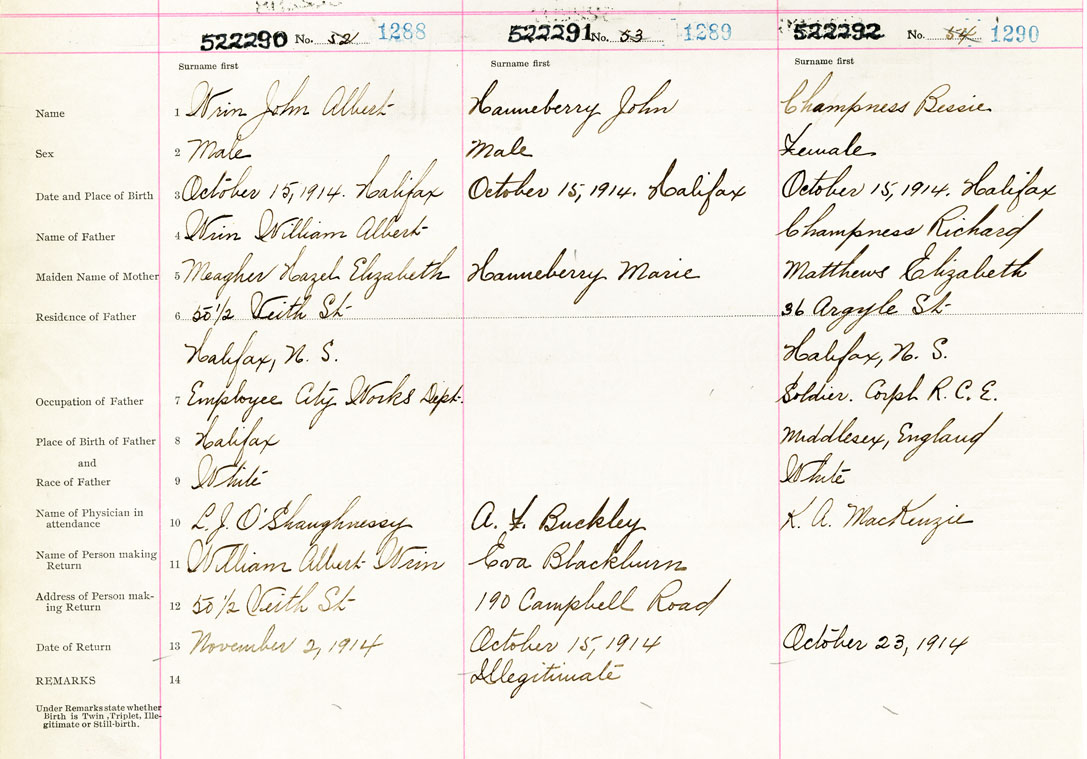 522290 No. 52 1288 522291 No. 53 1289 522292 No. 54 1290
Surname first Surname first Surname first
Name 1 Wrin John Albert Hanneberry John Champness Bessie
Sex 2 Male Male Female
Date and Place of Birth 3 October 15, 1914. Halifax October 15, 1914. Halifax October 15, 1914. Halifax
Name of Father 4 Wrin William Albert Champness Richard
Maiden Name of Mother 5 Meagher Hazel Elizabeth Hanneberry Marie Matthews Elizabeth
Residence of Father 6 50 1/2 Veith St 36 Argyle St
Halifax, N. S. Halifax, N. S.
Occupation of Father 7 Employee City Works Dept. Soldier. Corpl R. C. E.
Place of Birth of Father 8 Halifax Middlesex, England
and
Race of Father 9 White White
Name of Physician in
attendance 10 L. J. O'Shaughnessy A. F. Buckley K. A. MacKenzie
Name of Person making
Return 11 William Albert Wrin Eva Blackburn
Address of Person mak-
ing Return 12 50 1/2 Veith St 190 Campbell Road
Date of Return 13 November 2, 1914 October 15, 1914 October 23, 1914
REMARKS 14 Illegitimate
Under Remarks state whether
Birth is Twin, Triplet, Ille-
gitimate or Still-birth.